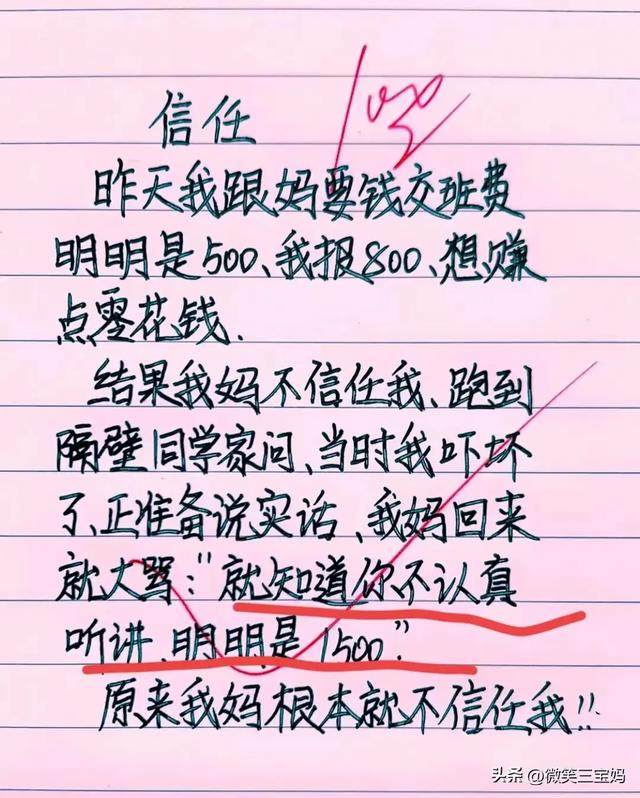 信任
100
昨天我跟妈要钱交班费
明明是500、我报800、想赚
点零花钱.
结果我妈不信任我、跑到
隔壁同学家问、当时我吓坏
了、正准备说实话、我妈回来
就大骂:"就知道你不认真
听讲、明明是1500"
原来我妈根本就不信任我!!
头条@微笑三宝妈